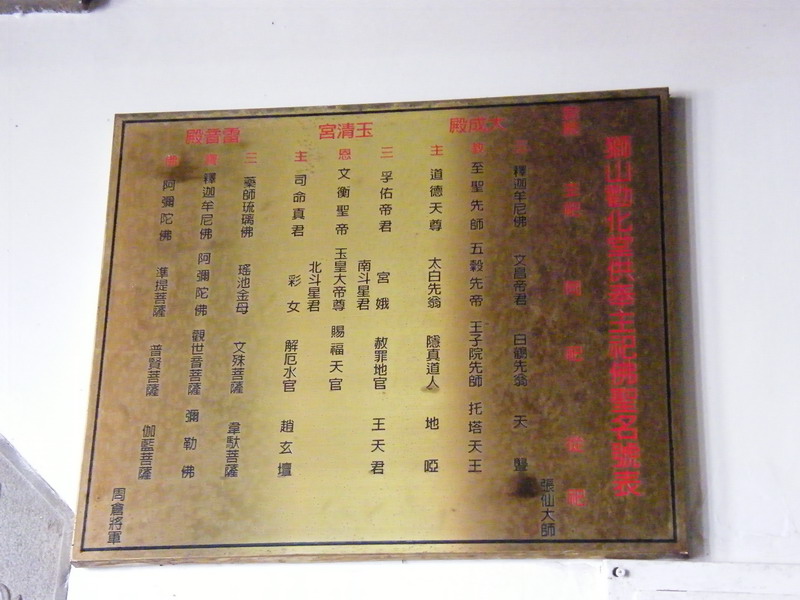 獅山勸化堂供奉主祀佛聖名號表
宮殿 主祀 同祀 從祀
大成殿
三 釋迦牟尼佛 文昌帝君 白鶴先翁 天聾 張仙大師
教 至聖先師 五穀先帝 王子院先師 托塔天王
主 道德天尊 太白先翁 隱真道人 地啞
玉清宮
三 孚佑帝君 宮娥 赦罪地官 王天君
南斗星君
恩 文衡聖帝 玉皇大帝尊 賜福天官
北斗星君
主 司命真君 彩女 解厄水官 趙玄壇
雷音殿
三 藥師琉璃佛 瑤池金母 文殊菩薩 韋馱菩薩
寶 釋迦牟尼佛 阿彌陀佛 觀世音菩薩 彌勒佛
阿彌陀佛 準提菩薩 普賢菩薩 伽藍菩薩
周倉將軍